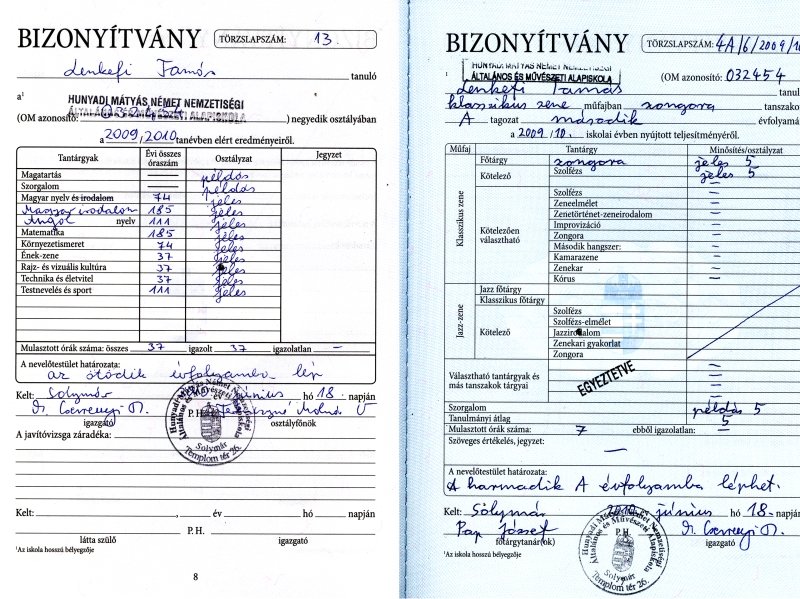 BIZONYÍTVÁNY TÖRZSLAPSZÁM: 13.
Lenkefi Tamás tanuló
a¹ HUNYADI MÁTYÁS NÉMET NEMZETISÉGI
ÁLTALÁNOS ÉS MŰVÉSZETI ALAPISKOLA
(OM azonosító: 032454) negyedik osztályában
a 2009/2010 tanévben elért eredményeiről.
Tantárgyak Évi összes óraszám Osztályzat Jegyzet
Magatartás — példás
Szorgalom — példás
Magyar nyelv és irodalom 74 jeles
Magyar irodalom 185 jeles
Angol nyelv 111 jeles
Matematika 185 jeles
Környezetismeret 74 jeles
Ének-zene 37 jeles
Rajz- és vizuális kultúra 37 jeles
Technika és életvitel 37 jeles
Testnevelés és sport 111 jeles
Mulasztott órák száma: összes 37 igazolt 37 igazolatlan —
A nevelőtestület határozata:
az ötödik évfolyamba lép
Kelt: Solymár év június hó 18. napján
P.H.
igazgató osztályfőnök
Hunyadi Mátyás Német Nemzetiségi Általános és Művészeti Alapiskola
Solymár
Templom tér 26.
A javítóvizsga záradéka:
Kelt: , év hó napján
P.H.
látta szülő igazgató
¹Az iskola hosszú bélyegzője
8
BIZONYÍTVÁNY TÖRZSLAPSZÁM: 4A/6/2009/10
HUNYADI MÁTYÁS NÉMET NEMZETISÉGI
ÁLTALÁNOS ÉS MŰVÉSZETI ALAPISKOLA
(OM azonosító: 032454
Lenkefi Tamás tanul
klasszikus zene műfajban zongora tanszako
A tagozat második évfolyamá
a 2009/10. iskolai évben nyújtott teljesítményéről.
Műfaj Tantárgy Minősítés/osztályzat
Klasszikus zene
Főtárgy zongora jeles 5
Kötelező Szolfézs jeles 5
Kötelezően választható
Szolfézs —
Zeneelmélet —
Zenetörténet-zeneirodalom —
Improvizáció —
Zongora —
Második hangszer: —
Kamarazene —
Zenekar —
Kórus —
Jazz-zene
Jazz főtárgy
Klasszikus főtárgy
Kötelező
Szolfézs
Szolfézs-elmélet
Jazzirodalom
Zenekari gyakorlat
Zongora
Választható tantárgyak és
más tanszakok tárgyai
EGYEZTETVE
Szorgalom példás 5
Tanulmányi átlag 5
Mulasztott órák száma: 7 ebből igazolatlan: —
Szöveges értékelés, jegyzet:
—
A nevelőtestület határozata:
A harmadik A évfolyamba léphet.
Kelt: Solymár 2010 év június hó 18. napján
Pap József P.H.
főtárgytanár(ok) igazgató
¹Az iskola hosszú bélyegzője
Hunyadi Mátyás Német Nemzetiségi Általános és Művészeti Alapiskola
Solymár
Templom tér 26.